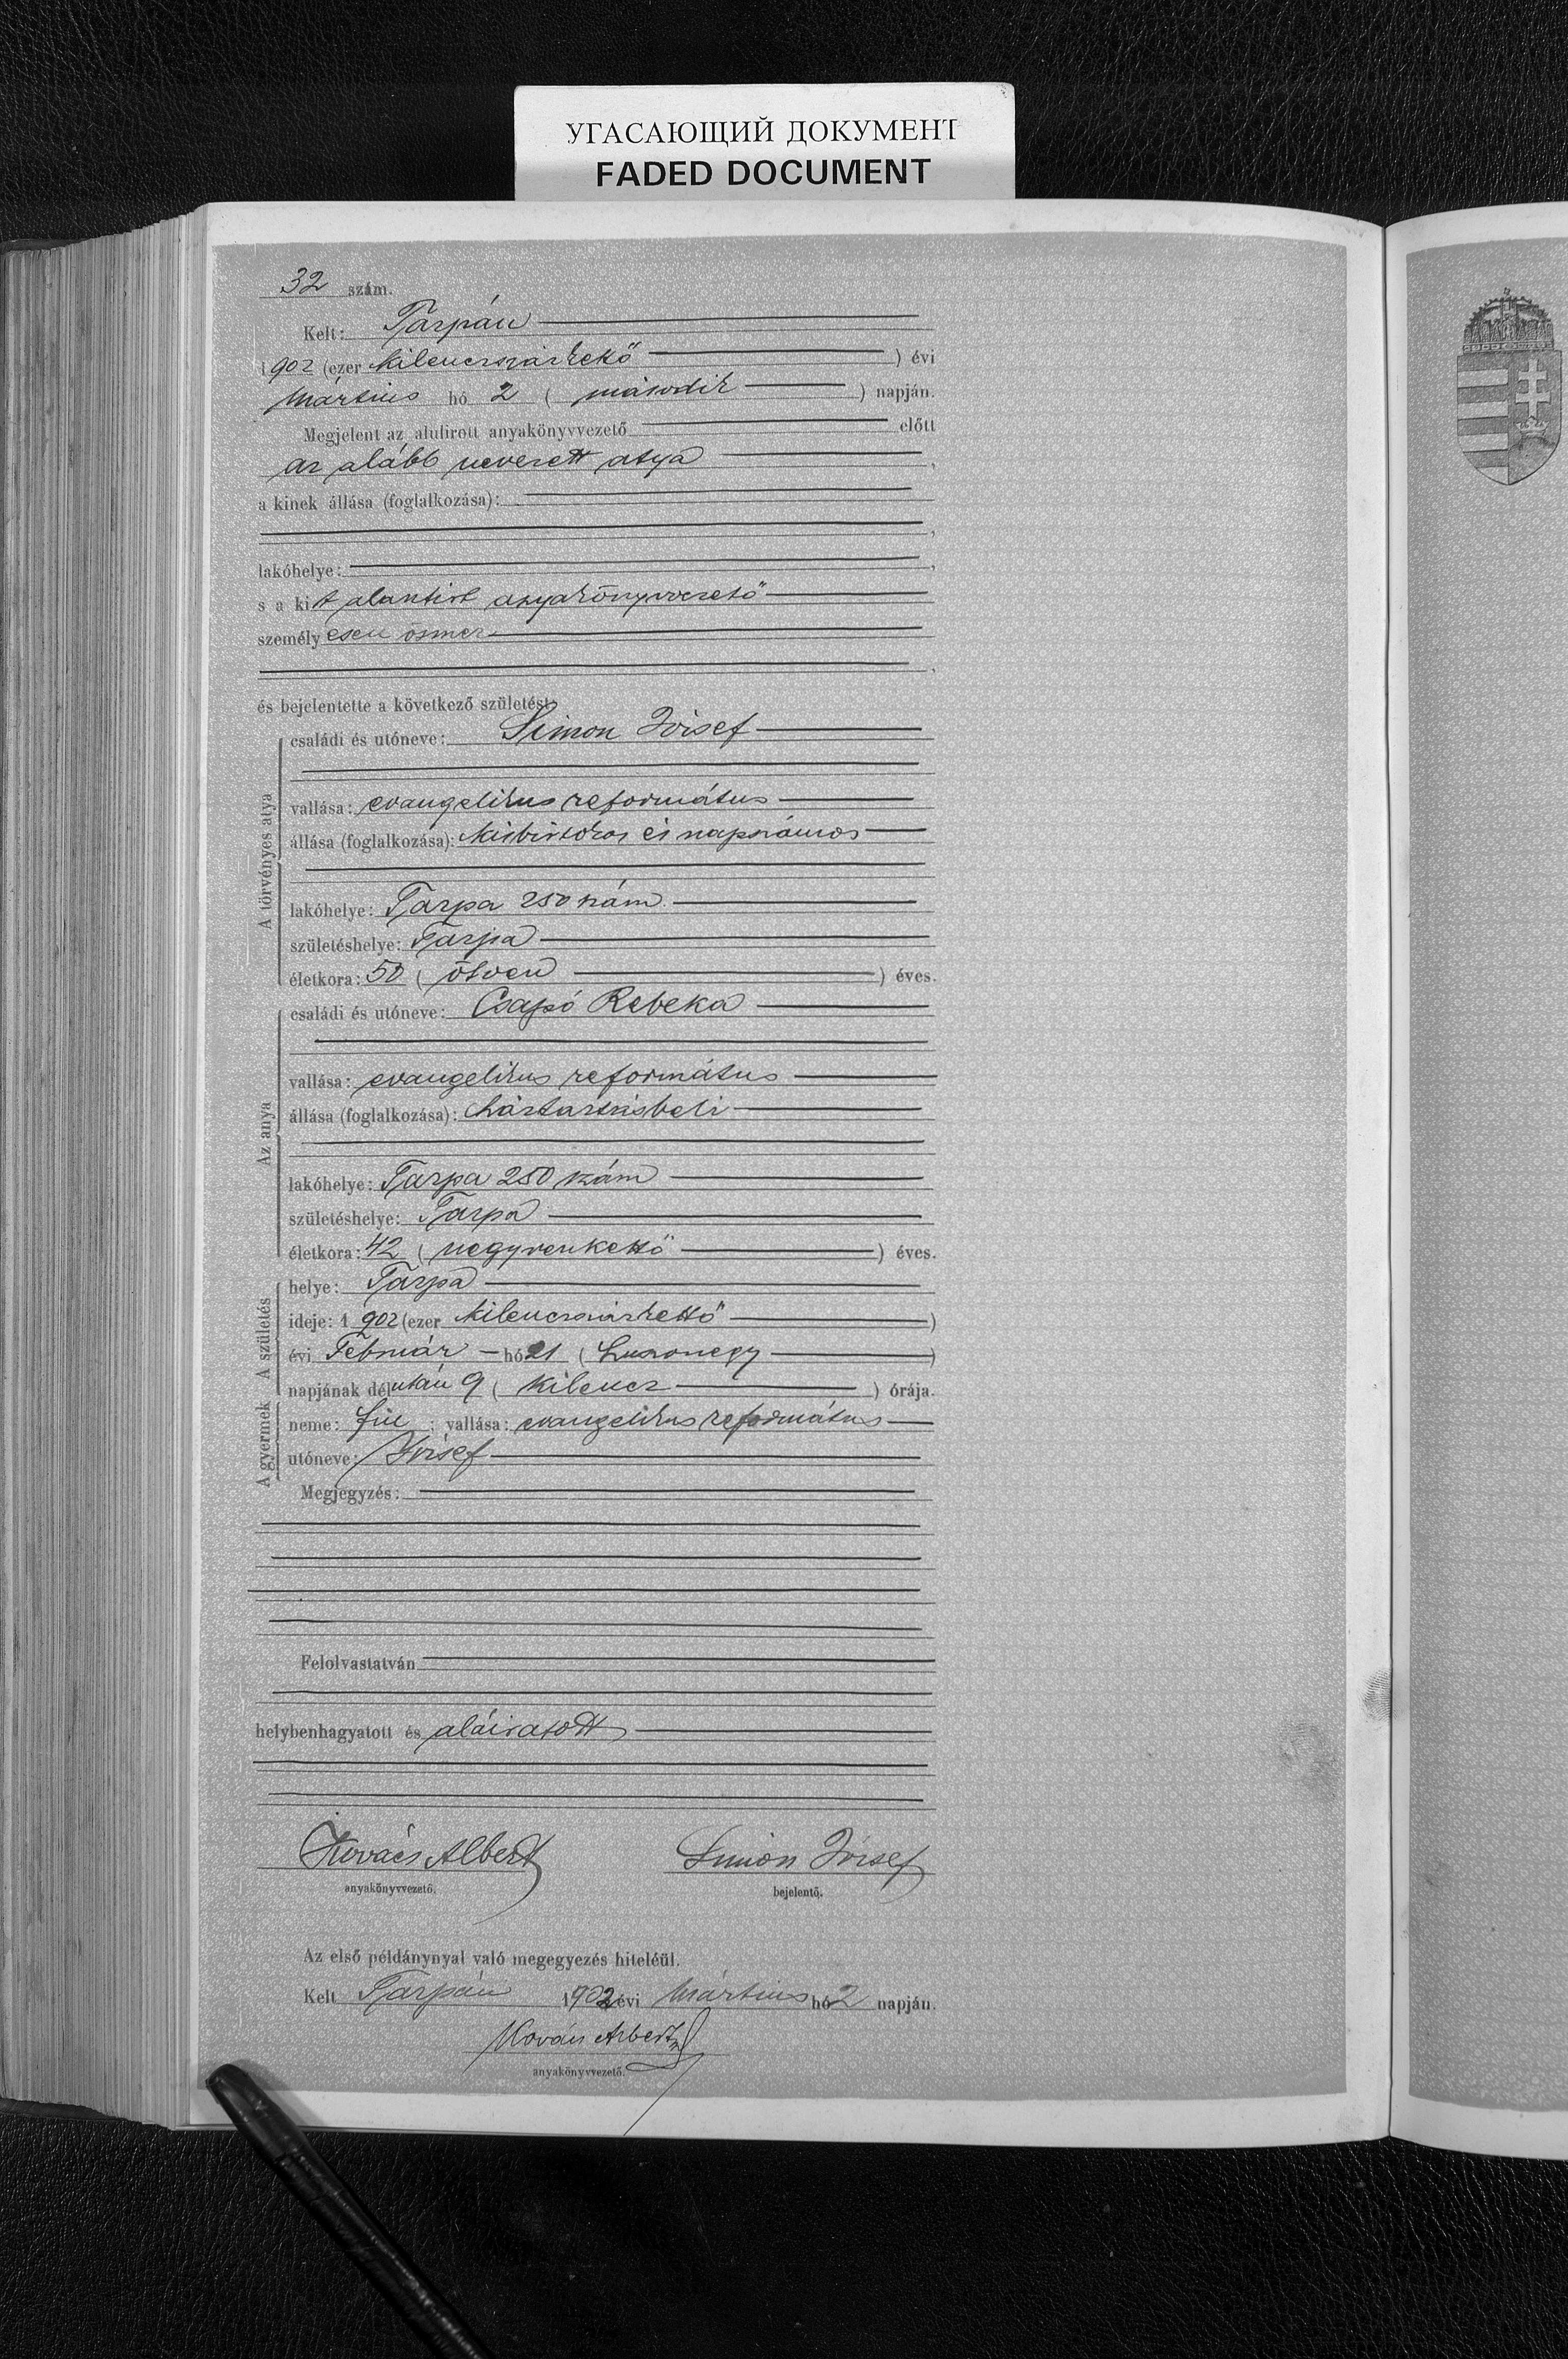 УГАСАЮЩИЙ ДОКУМЕНТ
FADED DOCUMENT
32 szám.
Kelt: Tarpán
1902 (ezer kilenczszázkettő) évi
Március hó 2 ( második ) napján.
Megjelent az alulirott anyakönyvvezető előtt
az alább nevezett atya ,
a kinek állása (foglalkozása):
,
lakóhelye: ,
s a kit alantirt anyakönyvvezető
személyesen ösmer
,
és bejelentette a következő születést:
A törvényes atya
családi és utóneve: Simon József
vallása: evangelikus református
állása (foglalkozása): kisbirtokos és napszámos
lakóhelye: Tarpa 250 szám.
születéshelye: Tarpa
életkora: 50 ( ötven ) éves.
Az anya
családi és utóneve: Csapó Rebeka
vallása: evangelikus református
állása (foglalkozása): háztartásbeli
lakóhelye: Tarpa 250 szám
születéshelye: Tarpa
életkora: 42 ( negyvenkettő ) éves.
A születés
helye: Tarpa
ideje: 1902 (ezer kilenczszázkettő )
évi Február hó 21 ( huszonegy )
napjának délután 9 ( kilencz ) órája.
A gyermek
neme: fiu ; vallása: evangelikus református
utóneve: József
Megjegyzés:
Felolvastatván
helybenhagyatott és aláiratott
Kovács Albert Simon József
anyakönyvvezető. bejelentő.
Az első példánynyal való megegyezés hiteléül.
Kelt Tarpán 1902 évi Március hó 2 napján.
Kovács Albert
anyakönyvvezető.